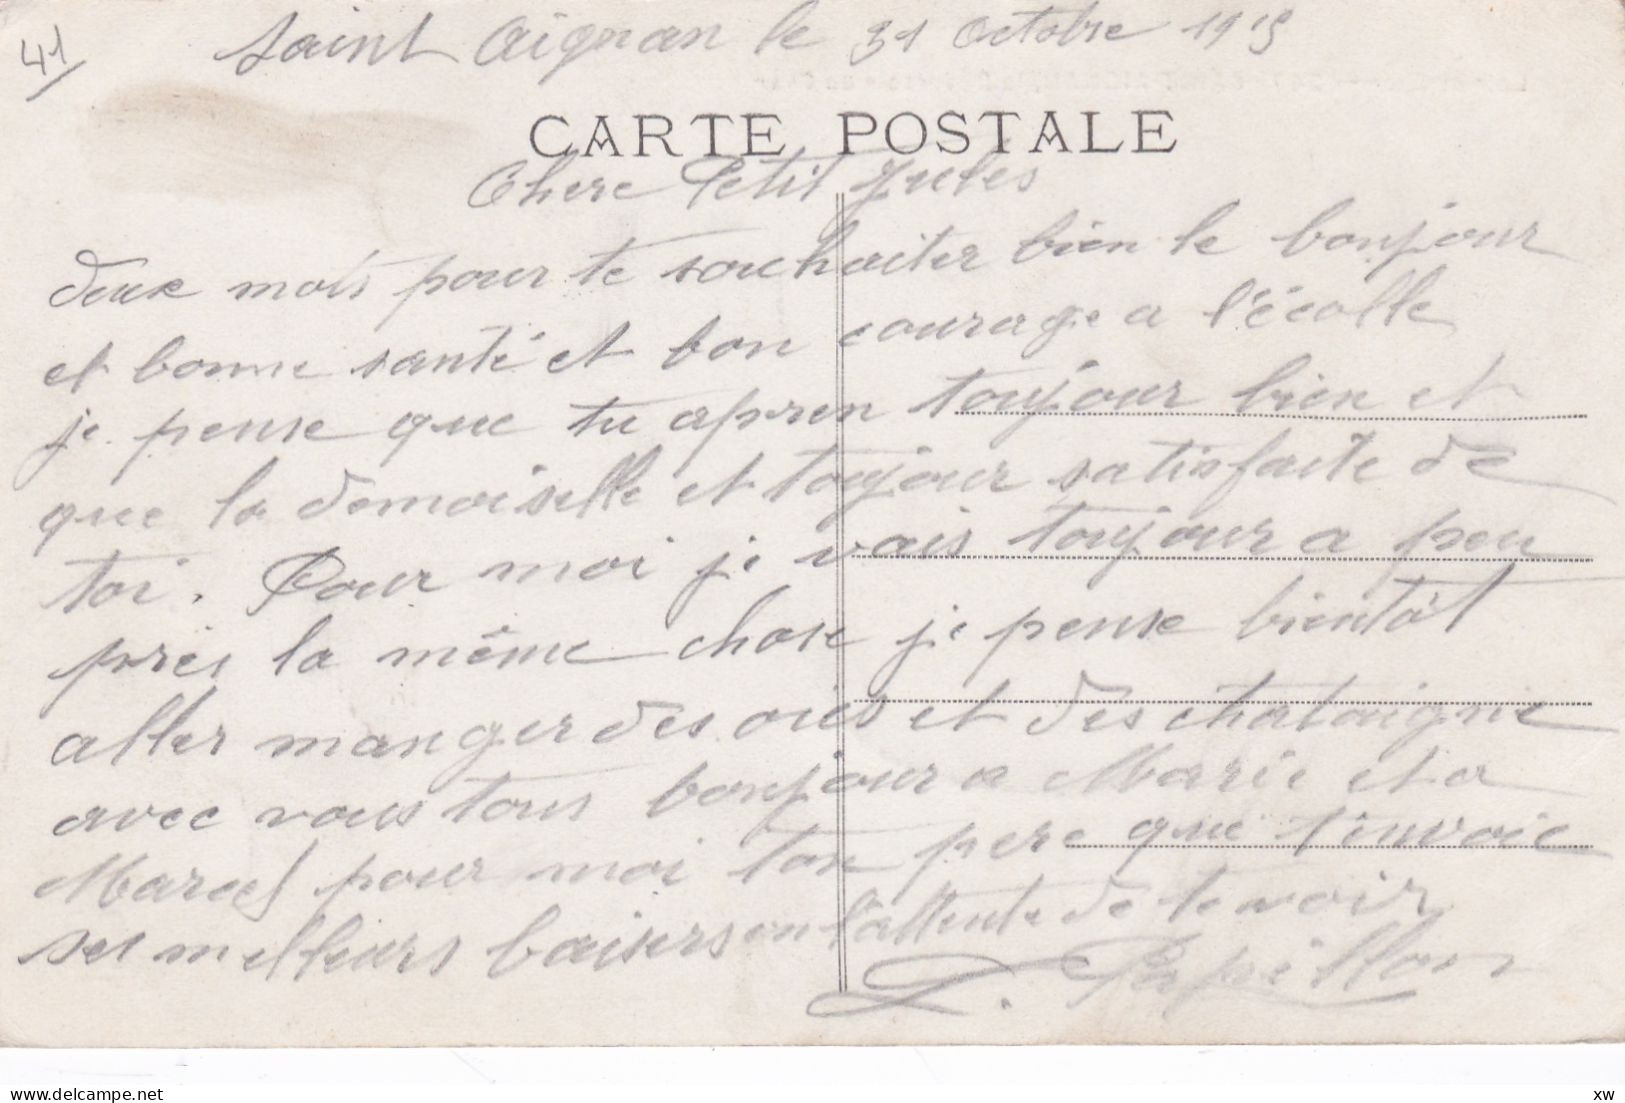 41
Saint Aignan le 31 Octobre 1915
CARTE POSTALE
Chere Petit Jules
deux mots pour te souchaiter bien le bonjour
et bonne santé et bon courage a l'écolle
je pense que tu apren toujour bien et
que la demoiselle et toujour satisfaite de
toi. Pour moi je vais toujour a peu
pres la même chose je pense bientôt
aller manger des oies et des chataigne
avec vous tous bonjour a Marie et a
Marcel pour moi ton pere que t'envoie
ses meilleurs baisers en l'attente de te voir
L. Papillon
xw